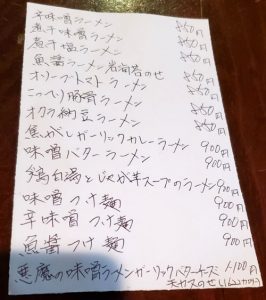 辛味噌ラーメン 850円
煮干味噌ラーメン 850円
煮干塩ラーメン 850円
魚醤ラーメン岩海苔のせ 850円
オリーブトマトラーメン 850円
こってり豚骨ラーメン 850円
オクラ納豆ラーメン 850円
焦がしガーリックカレーラーメン 900円
味噌バターラーメン 900円
鶏白湯とじゃが芋スープのラーメン 900円
味噌つけ麺 900円
辛味噌つけ麺 900円
魚醤つけ麺 900円
悪魔の味噌ラーメンガーリックバターチーズ 1100円